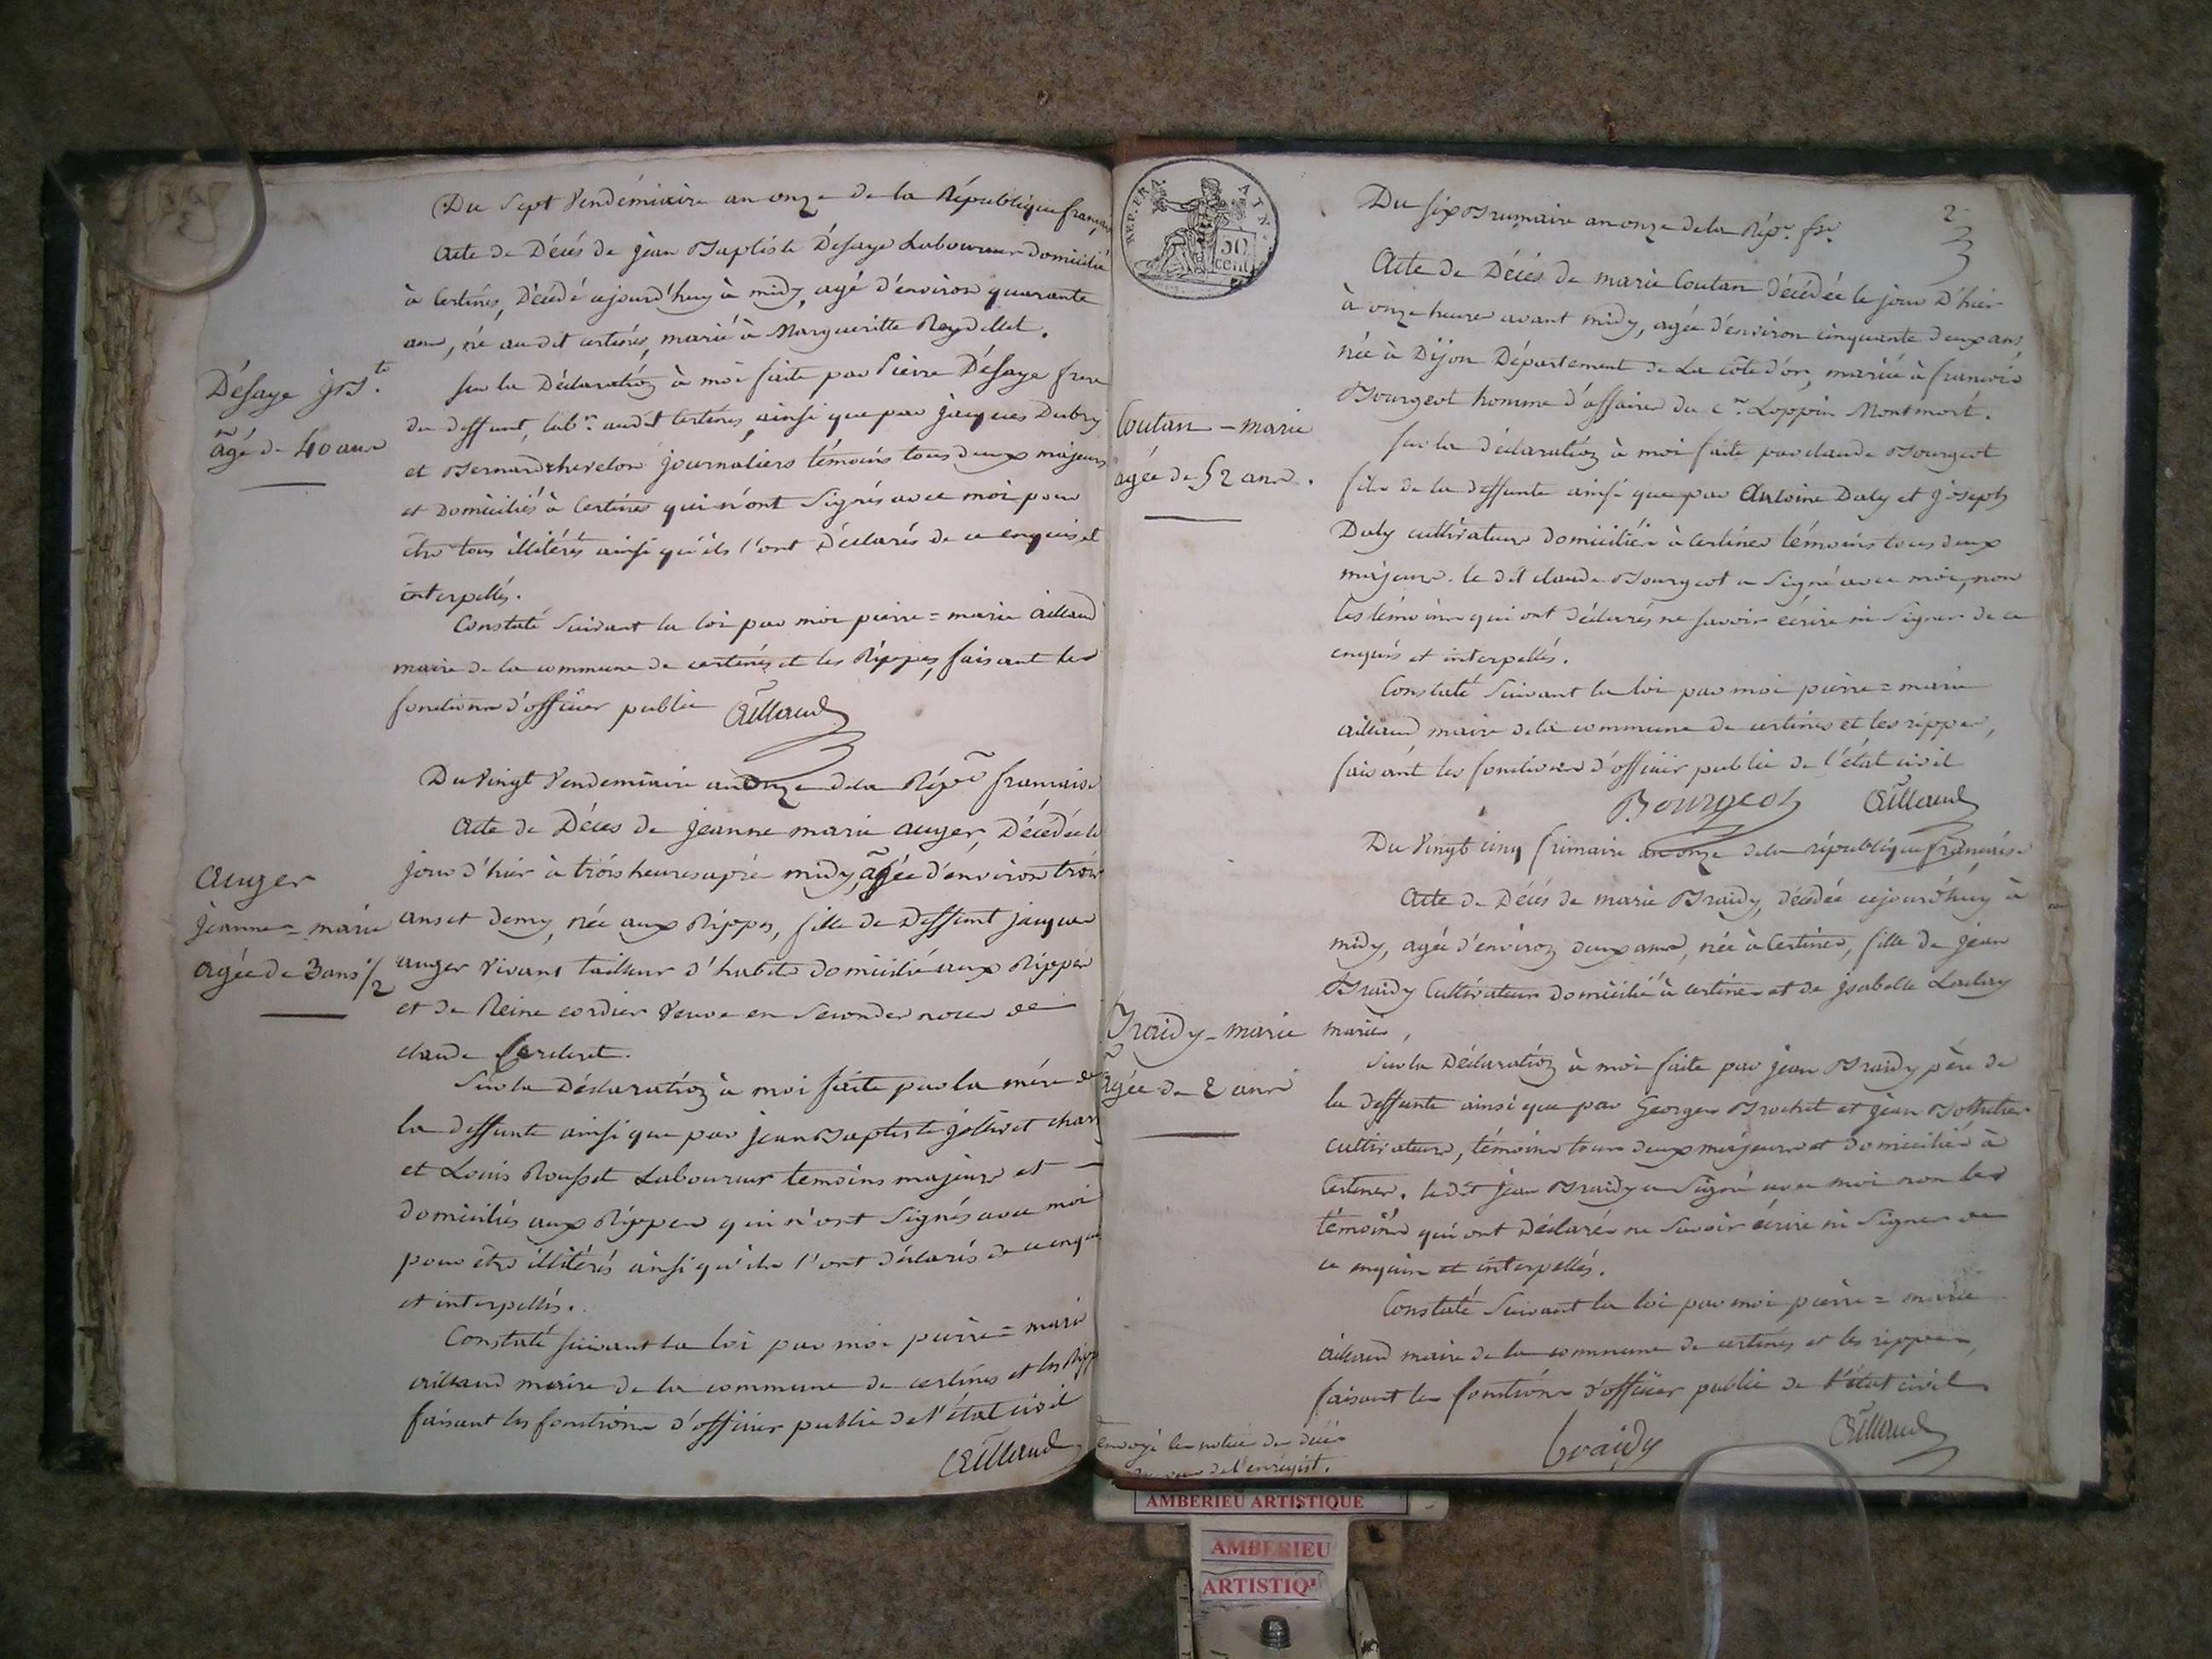 Du Sept Vendémiaire an onze de la République français
Acte de Décés de jean Baptiste Désaye Laboureur domicilié
à Certines, Décédé cejourd'huy à midy, agé d'environ quarante
ans, né au dit certines, marié à Margueritte Reydellet.
Désaye j. B.te
agé de 40 ans
Sur la Déclaration à moi faite par Pierre Désaye frere
du deffunt, lab.r audit Certines, ainsi que par jacques Dubry
et Bernard chevelon journaliers témoins tous deux majeurs
et Domiciliés à Certines qui n'ont Signés avec moi pour
être tous illitérés ainsi qu'ils l'ont Déclarés de ce enquis et
interpellés.
Constaté Suivant la loi par moi pierre = marie aillaud
maire de la commune de certines et les Rippes, faisant les
fonctions d'officier public Aillaud
Du Vingt Vendemiaire an onze de la Rép.e francaise
Acte de Déces de jeanne marie auger, Décédée le
jour d'hier à trois heures aprés midy, agée d'environ trois
ans et demy, née aux Rippes, fille de Deffunt jacques
auger vivant tailleur d'habits domicilié aux Rippes
et de Reine cordier veuve en secondes noces de
claude
Auger
jeanne = marie
agée de 3 ans 1/2
Sur la Déclaration à moi faite par la mére de
la deffunte ainsi que par jean Baptiste jollivet
et Louis Rousset Laboureur temoins majeurs et
domiciliés aux Rippes qui n'ont Signés avec moi
pour être illitérés ainsi qu'ils l'ont déclarés de ce enqui
et interpellés.
Constaté suivant la loi par moi pierre = mari
aillaud maire de la commune de certines et les Ripp
faisant les fonctions d'officier public de l'état civil
Aillaud
REP. FRA
50
cent
2
Du six Brumaire an onze de la Rép.e fse
Acte de Décés de marie Coutan décédée le jour d'hier
à onze heures avant midy, agée d'environ cinquante deux ans
née à Dijon Département de La côte d'or, mariée à francois
Bourgeot homme d'affaires du c.n Loppin Montmort.
Coutan - marie
agée de 52 ans.
Sur la déclaration à moi faite par claude Bourgeot
fils de la deffunte ainsi que par Antoine Daly et joseph
Daly cultivateurs domiciliés à certines témoins tous deux
majeurs. le dit claude Bourgeot a Signé avec moi, non
les témoins qui ont déclarés ne savoir écrire ni Signer de ce
enquis et interpellés.
Constaté Suivant la loi par moi pierre = marie
aillaud, maire de la commune de certines et les rippes,
faisant les fonctions d'officier public de l'état civil
Bourgeot Aillaud
Du Vingt cinq frimaire an onze de la république francaise
Acte de Décés de marie Braidy, décédée cejourd'huy à
midy, agée d'environ deux ans, née à Certines, fille de jean
Braidy Cultivateur domicilié à certines et de jsabelle
mariés,
Braidy - marie
agée de 2 ans
Sur la Déclaration à moi faite par jean Braidy, père de
la deffunte ainsi que par Georges Brochet et jean
cultivateurs, témoins tous deux majeurs et domiciliés à
Certines. le dit jean Braidy a Signé avec moi non les
témoins qui ont Déclarés ne Savoir écrire ni Signer de
ce enquis et interpellés.
Constaté Suivant la loi par moi pierre = marie
aillaud maire de la commune de certines et les rippes,
faisant les fonctions d'officier public de l'état civil
braidy Aillaud
envoyé la notice des décés
de l'enregist.
AMBERIEU ARTISTIQUE
AMBERIEU
ARTISTIQU